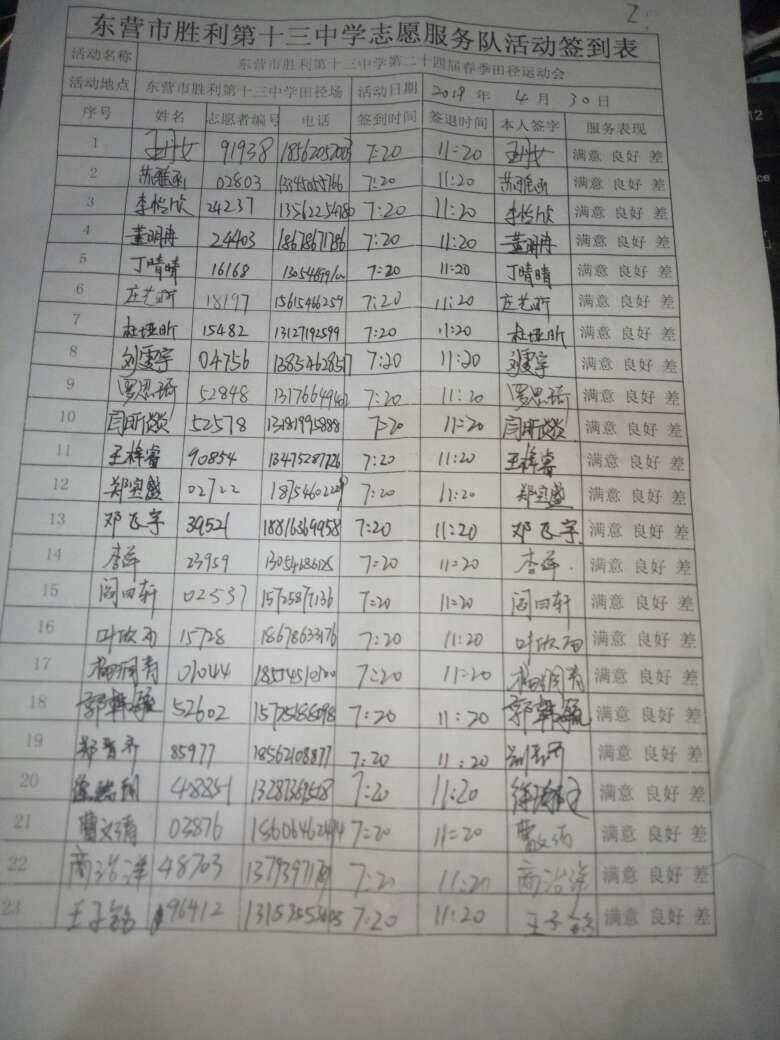 2.
东营市胜利第十三中学志愿服务队活动签到表
活动名称 东营市胜利第十三中学第二十四届春季田径运动会
活动地点 东营市胜利第十三中学田径场 活动日期 2018 年 4 月 30 日
序号 姓名 志愿者编号 电话 签到时间 签退时间 本人签字 服务表现
1 91938 18562052003 7:20 11:20 满意 良好 差
2 苏雅函 02803 7:20 11:20 苏雅函 满意 良好 差
3 李怡欣 24237 13562254780 7:20 11:20 李怡欣 满意 良好 差
4 董明冉 24403 18678671786 7:20 11:20 董明冉 满意 良好 差
5 丁晴晴 16168 7:20 11:20 丁晴晴 满意 良好 差
6 庄艺昕 18197 15615466259 7:20 11:20 庄艺昕 满意 良好 差
7 杜垭昕 15482 13127192599 7:20 11:20 杜垭昕 满意 良好 差
8 刘雯宇 04756 13854628517 7:20 11:20 刘雯宇 满意 良好 差
9 罗思琦 52848 7:20 11:20 罗思琦 满意 良好 差
10 闫昕燚 52578 13181995888 7:20 11:20 闫昕燚 满意 良好 差
11 王梓睿 90854 13475287726 7:20 11:20 王梓睿 满意 良好 差
12 02722 7:20 11:20 满意 良好 差
13 邓飞宇 39521 18816369958 7:20 11:20 邓飞宇 满意 良好 差
14 李萍 23959 7:20 11:20 李萍 满意 良好 差
15 阎日轩 02537 15725871136 7:20 11:20 阎日轩 满意 良好 差
16 叶欣雨 15728 18678633176 7:20 11:20 叶欣雨 满意 良好 差
17 01044 7:20 11:20 满意 良好 差
18 52602 7:20 11:20 满意 良好 差
19 85977 18562108877 7:20 11:20 满意 良好 差
20 48851 7:20 11:20 满意 良好 差
21 曹文清 03876 7:20 11:20 满意 良好 差
22 商治洋 48703 7:20 11:20 商治洋 满意 良好 差
23 王子铭 96412 7:20 11:20 王子铭 满意 良好 差